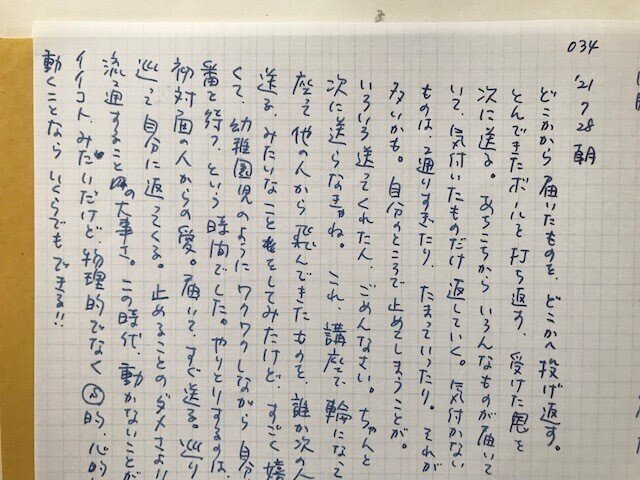 034
'21 7 28 朝
どこかから届いたものを、どこかへ投げ返す。
とんできたボールを打ち返す、受けた恩を
次に送る。あちこちから いろんなものが届いて
いて、気付いたものだけ 返していく。気付かない
ものは、通りすぎたり、たまっていったり。それが
多いかも。自分のところで止めてしまうことが。
いろいろ送ってくれた人、ごめんなさい。ちゃんと
次に送らなきゃね。これ、講座で、輪になって
座って 他の人から飛んできたものを、誰か次の人
送る、みたいなことをしてみたけど、すごく嬉
くて、幼稚園児のように ワクワクしながら 自分
番を待つ、という時間でした。やりとりするのは
初対面の人からの愛。届いて、すぐ送る。巡り
巡って自分に返ってくる。止めることのダメさより
流通することの大事さ。この時代、動かないことが
イイコトみたいだけど、物理的でなく 的、心的
動くことなら いくらでもできる!!